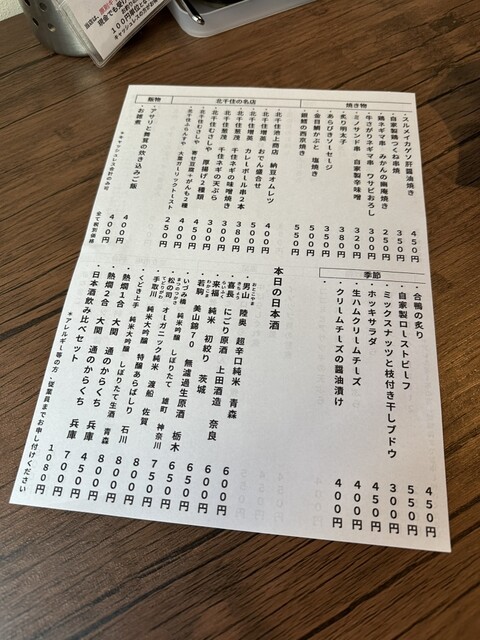 現金でも受け
100円単位と
キャッシュレスの方がお
焼き物
・スルメイカゲソ肝醤油焼き 450円
・自家製鶏つくね串焼 350円
・鶏ネギマ串 みかんの幽庵焼き 250円
・牛さがりネギマ串 ワサビおろし 300円
・ミノサンド串 自家製辛味噌 320円
・炙り明太子 380円
・あらびきソーセージ 350円
・金目鯛かぶと 塩焼き 500円
・銀鱈の西京焼き 550円
北千住の名店
・北千住池上商店 納豆オムレツ 400円
・北千住増英 おでん盛合せ 500円
・北千住増英 カレーボール串2本
・北千住葱茂 千住ネギの味噌焼き
・北千住葱茂 千住ネギの天ぷら 380円
・北千住むさしや 厚揚げ2種類
・北千住むさしや 寄せ豆腐+がんも2種 450円
・北千住ふらんすや 大葉ガーリックトースト 250円
飯物
・アサリと舞茸の炊き込みご飯 400円
・お雑煮 400円
全て税別価格
季節
・合鴨の炙り 450円
・自家製ローストビーフ 550円
・ミックスナッツと枝付き干しブドウ 300円
・ホッキサラダ 450円
・生ハムクリームチーズ 400円
・クリームチーズの醤油漬け 400円
本日の日本酒
男山 陸奥 超辛口純米 青森 600円
喜長 にごり原酒 上田酒造 奈良 600円
来福 純米 初絞り 茨城 600円
若駒 美山錦70 無濾過生原酒 栃木 650円
いづみ橋 純米吟醸 しぼりたて 雄町 神奈川 650円
松の司 オーガニック純米 渡船 佐賀 750円
手取川 純米大吟醸 特醸あらばしり 石川 800円
くどき上手 純米大吟醸 しぼりたて生酒 青森 800円
・熱燗1合 大関 通のからくち 兵庫 450円
・熱燗2合 大関 通のからくち 兵庫 700円
・日本酒飲み比べセット 1080円
*アレルギー等の方、従業員までお申し付けください